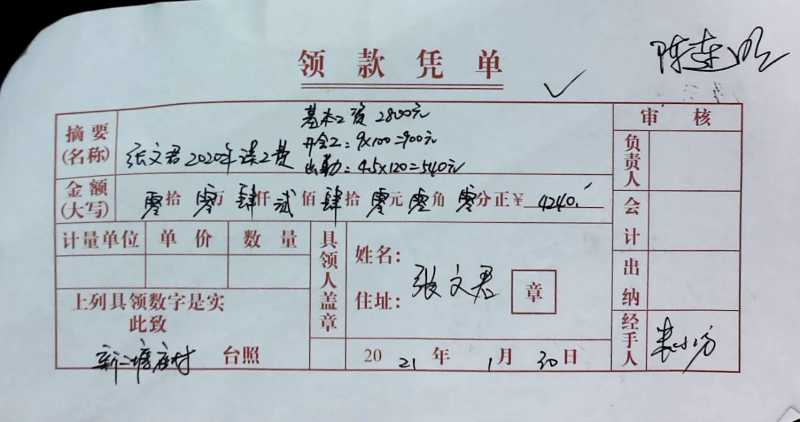 领款凭单
陈莲
审核
摘要
(名称)
张文君2020年误工费
基本工资 2800元
开会工:9×100=900元
出勤:4.5×120=540元
负责人
金额
(大写)
零拾零万肆仟贰佰肆拾零元零角零分正¥4240.
会计
计量单位 单价 数量
具领人盖章
姓名:
张文君
住址:
章
出纳
上列具领数字是实
此致
新塘庙村 台照
2021年1月30日
经手人